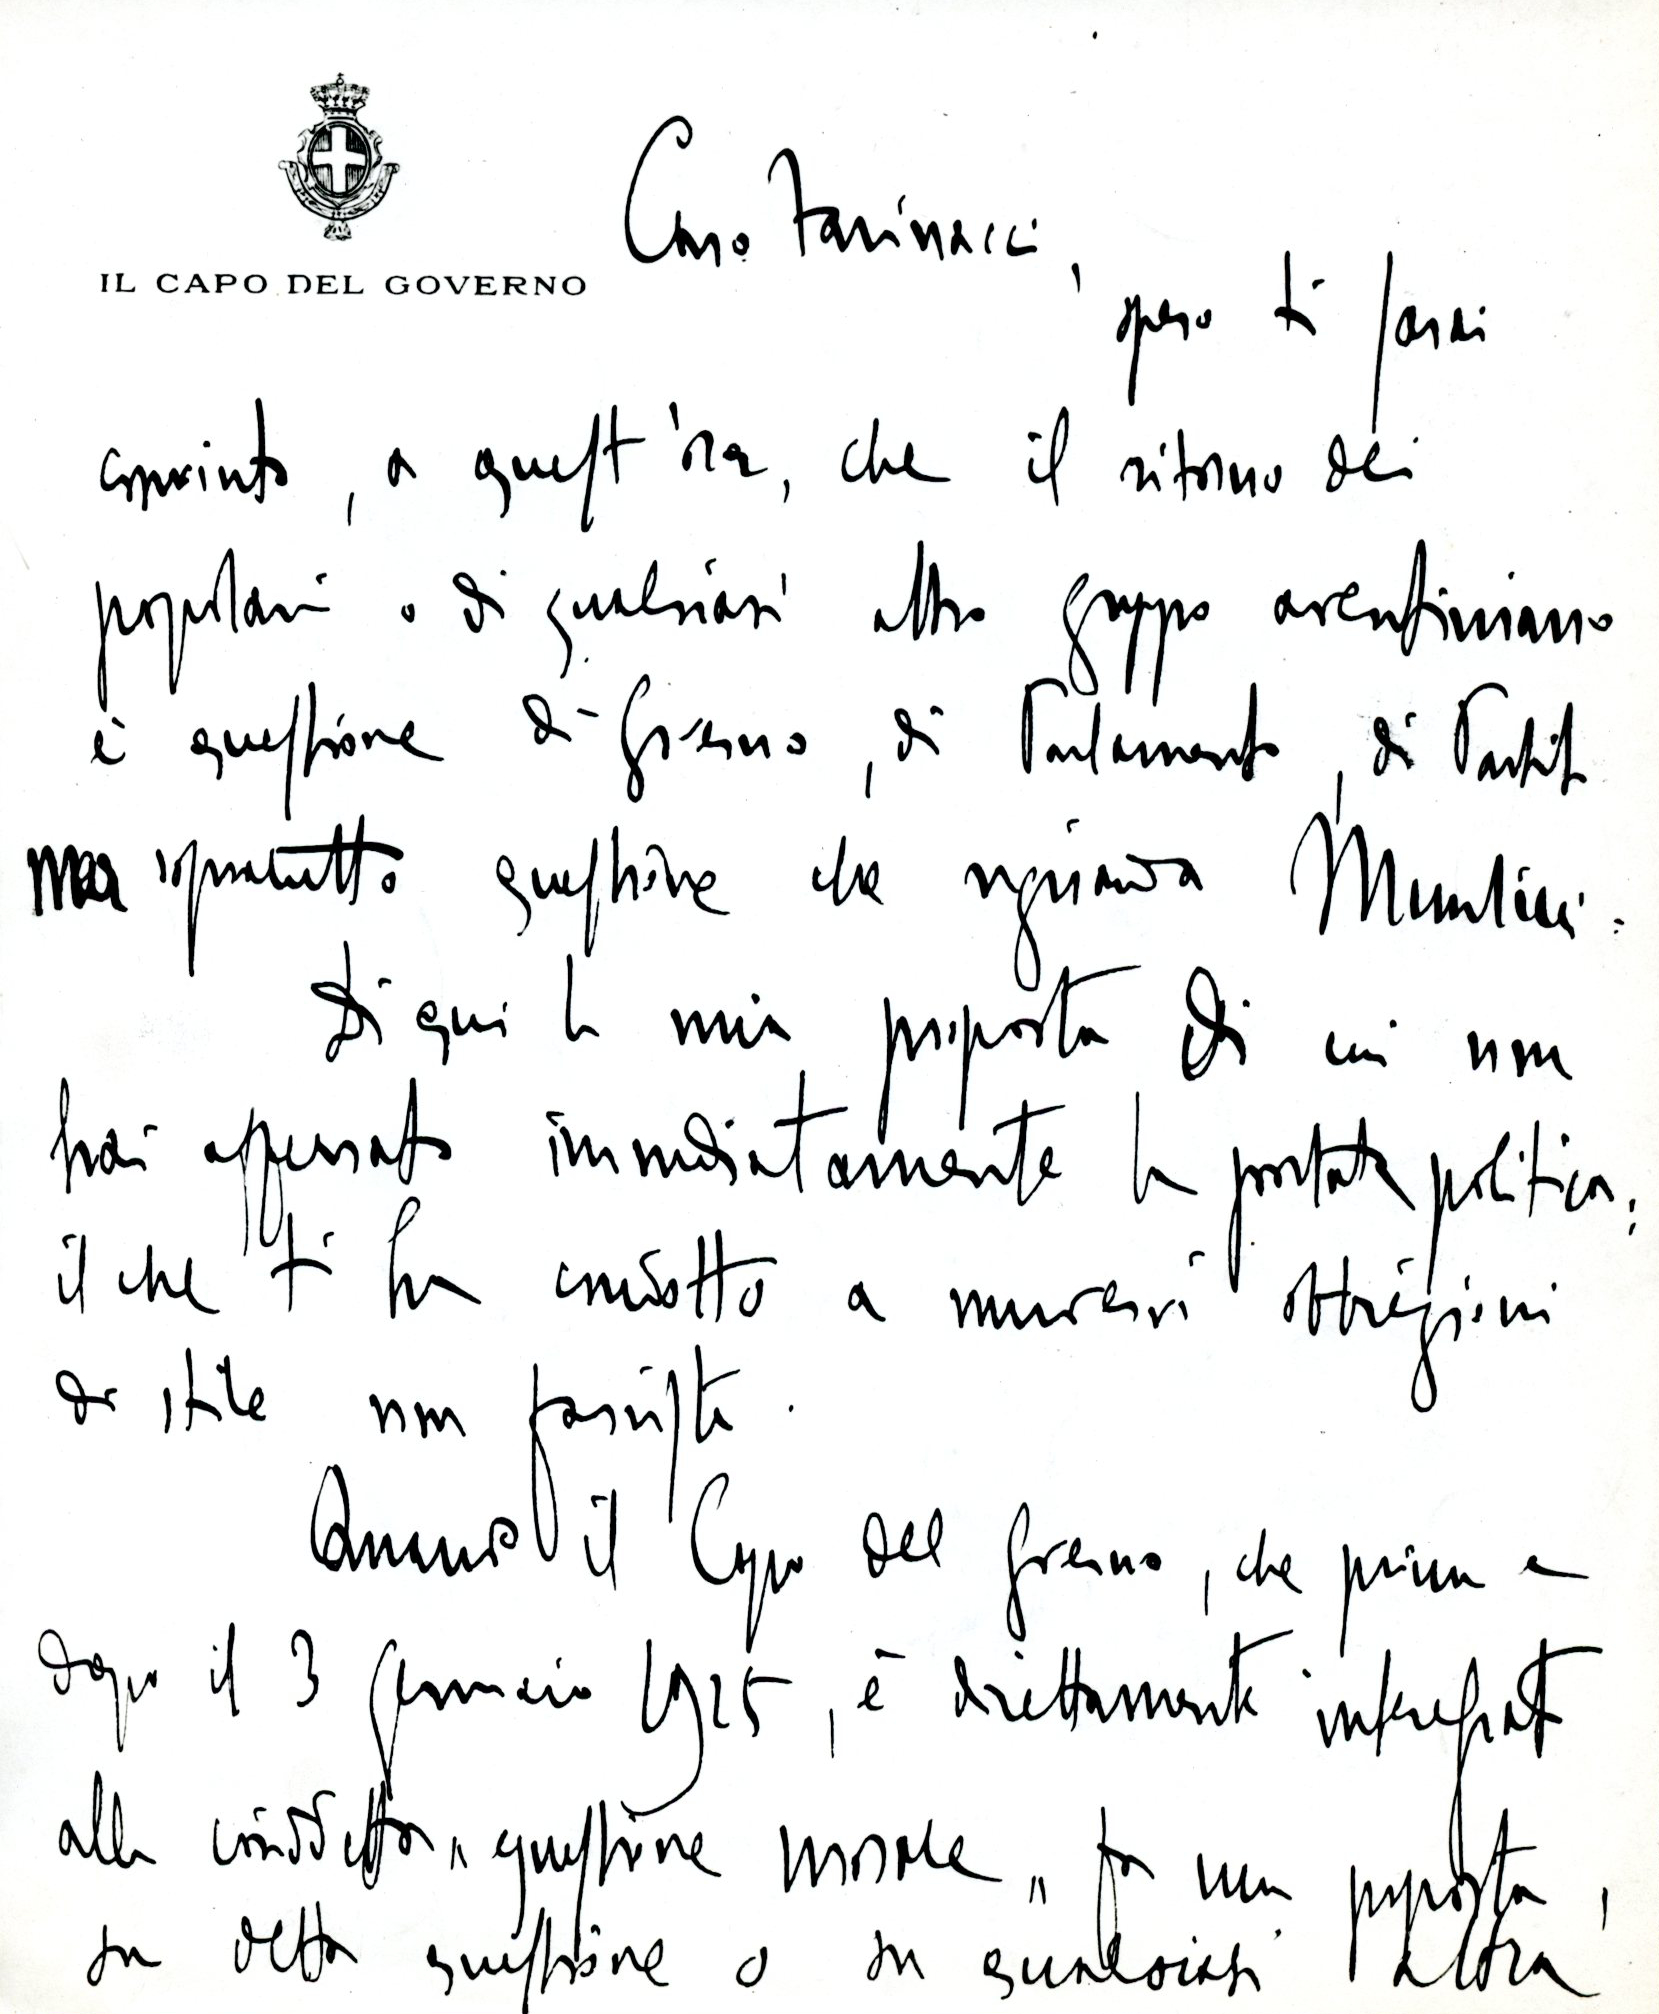 IL CAPO DEL GOVERNO
Caro Farinacci,
spero ti sarai
convinto, a quest'ora, che il ritorno dei
popolari o di qualsiasi altro gruppo aventiniano
è questione di Governo, di Parlamento, di Partito
ma sopratutto questione che riguarda Mussolini.
Di qui la mia proposta di cui non
hai afferrato immediatamente la portata politica;
il che ti ha condotto a muovervi obbiezioni
di stile non fascista.
Quando il Capo del Governo, che prima e
dopo il 3 gennaio 1925, è direttamente interessato
alla cosiddetta "questione morale" fa una proposta,
su detta questione o su qualsiasi altra